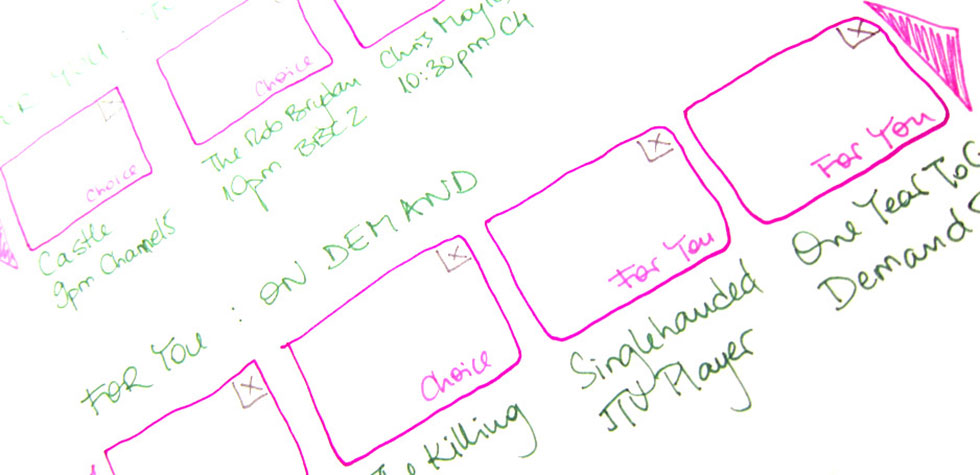 Choice
Castle
9pm Channel 5
Choice
The Rob Brydon
10pm BBC2
Chris Moyle
10:30pm C4
FOR YOU : ON DEMAND
X
Choice
Killing
X
For You
Singlehanded
ITV Player
X
For You
One Year To G
Demand 5
X